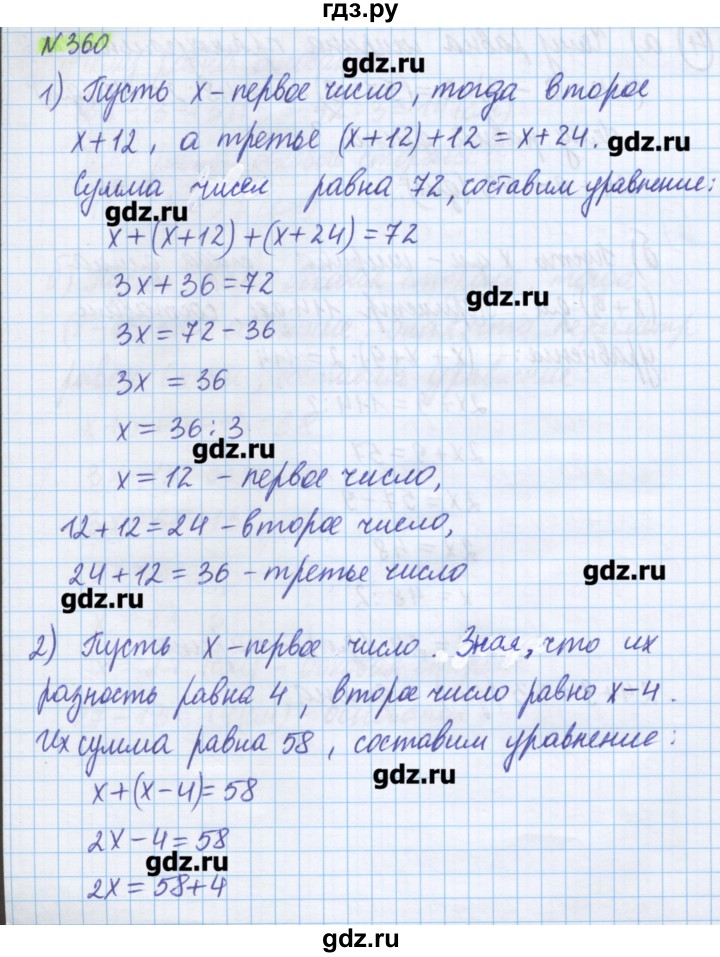 гдз.ру
№360
gdz.ru
1) Пусть x - первое число, тогда второе
x+12, а третье (x+12)+12 = x+24.
gdz.ru
Сумма чисел равна 72, составим уравнение:
gdz.ru
x+(x+12)+(x+24)=72
3x+36=72
gdz.ru
3x=72-36
3x = 36
x = 36:3
gdz.ru
x=12 - первое число,
12+12=24 - второе число,
24+12=36 - третье число
gdz.ru
gdz.ru
2) Пусть x - первое число. Зная, что их
разность равна 4, второе число равно x-4.
Их сумма равна 58, составим уравнение:
gdz.ru
x+(x-4)=58
2x-4=58
gdz.ru
2x=58+4
gdz.ru